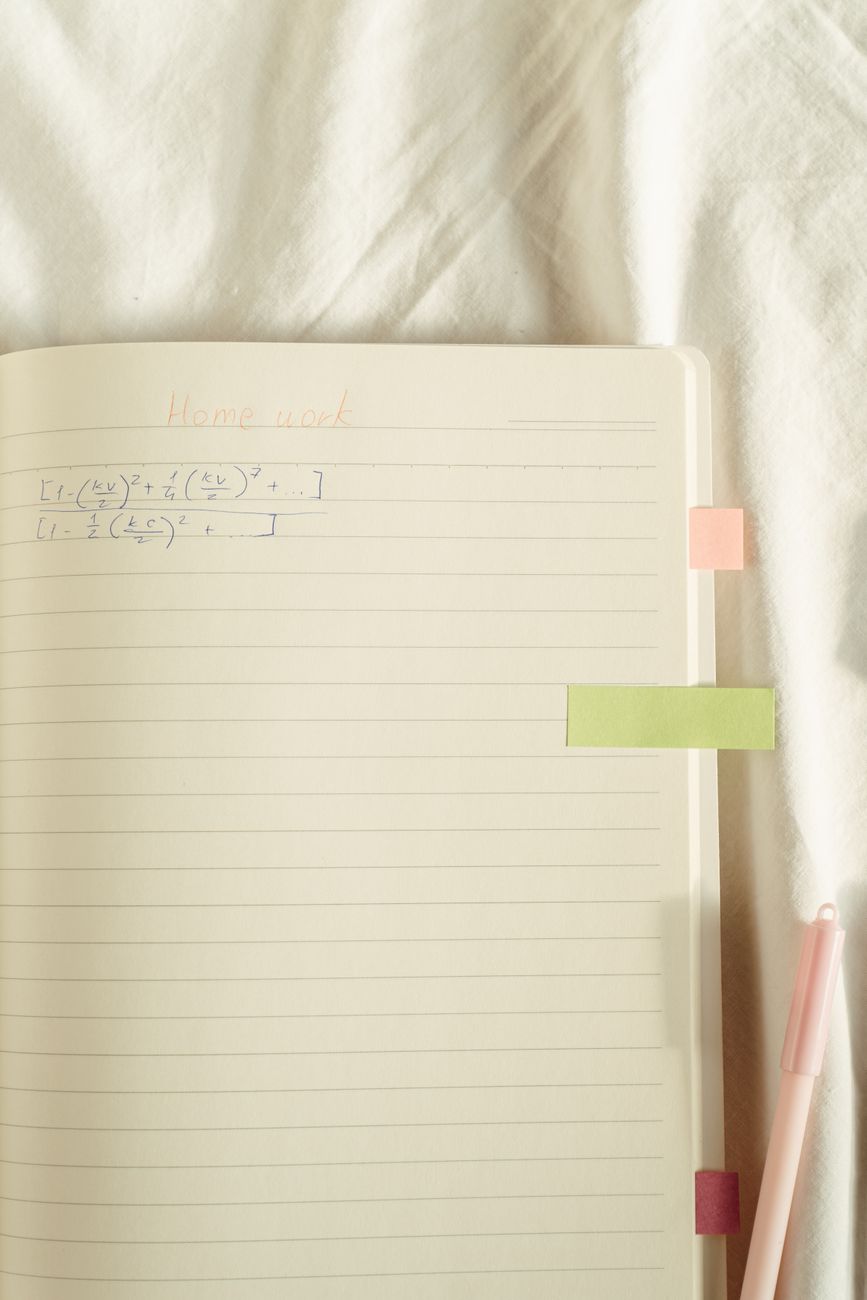 Home work
[1-(kv/2)²+ 1/4 (kv/2)⁷ +...]
[1- 1/2 (kc/2)² + ...]